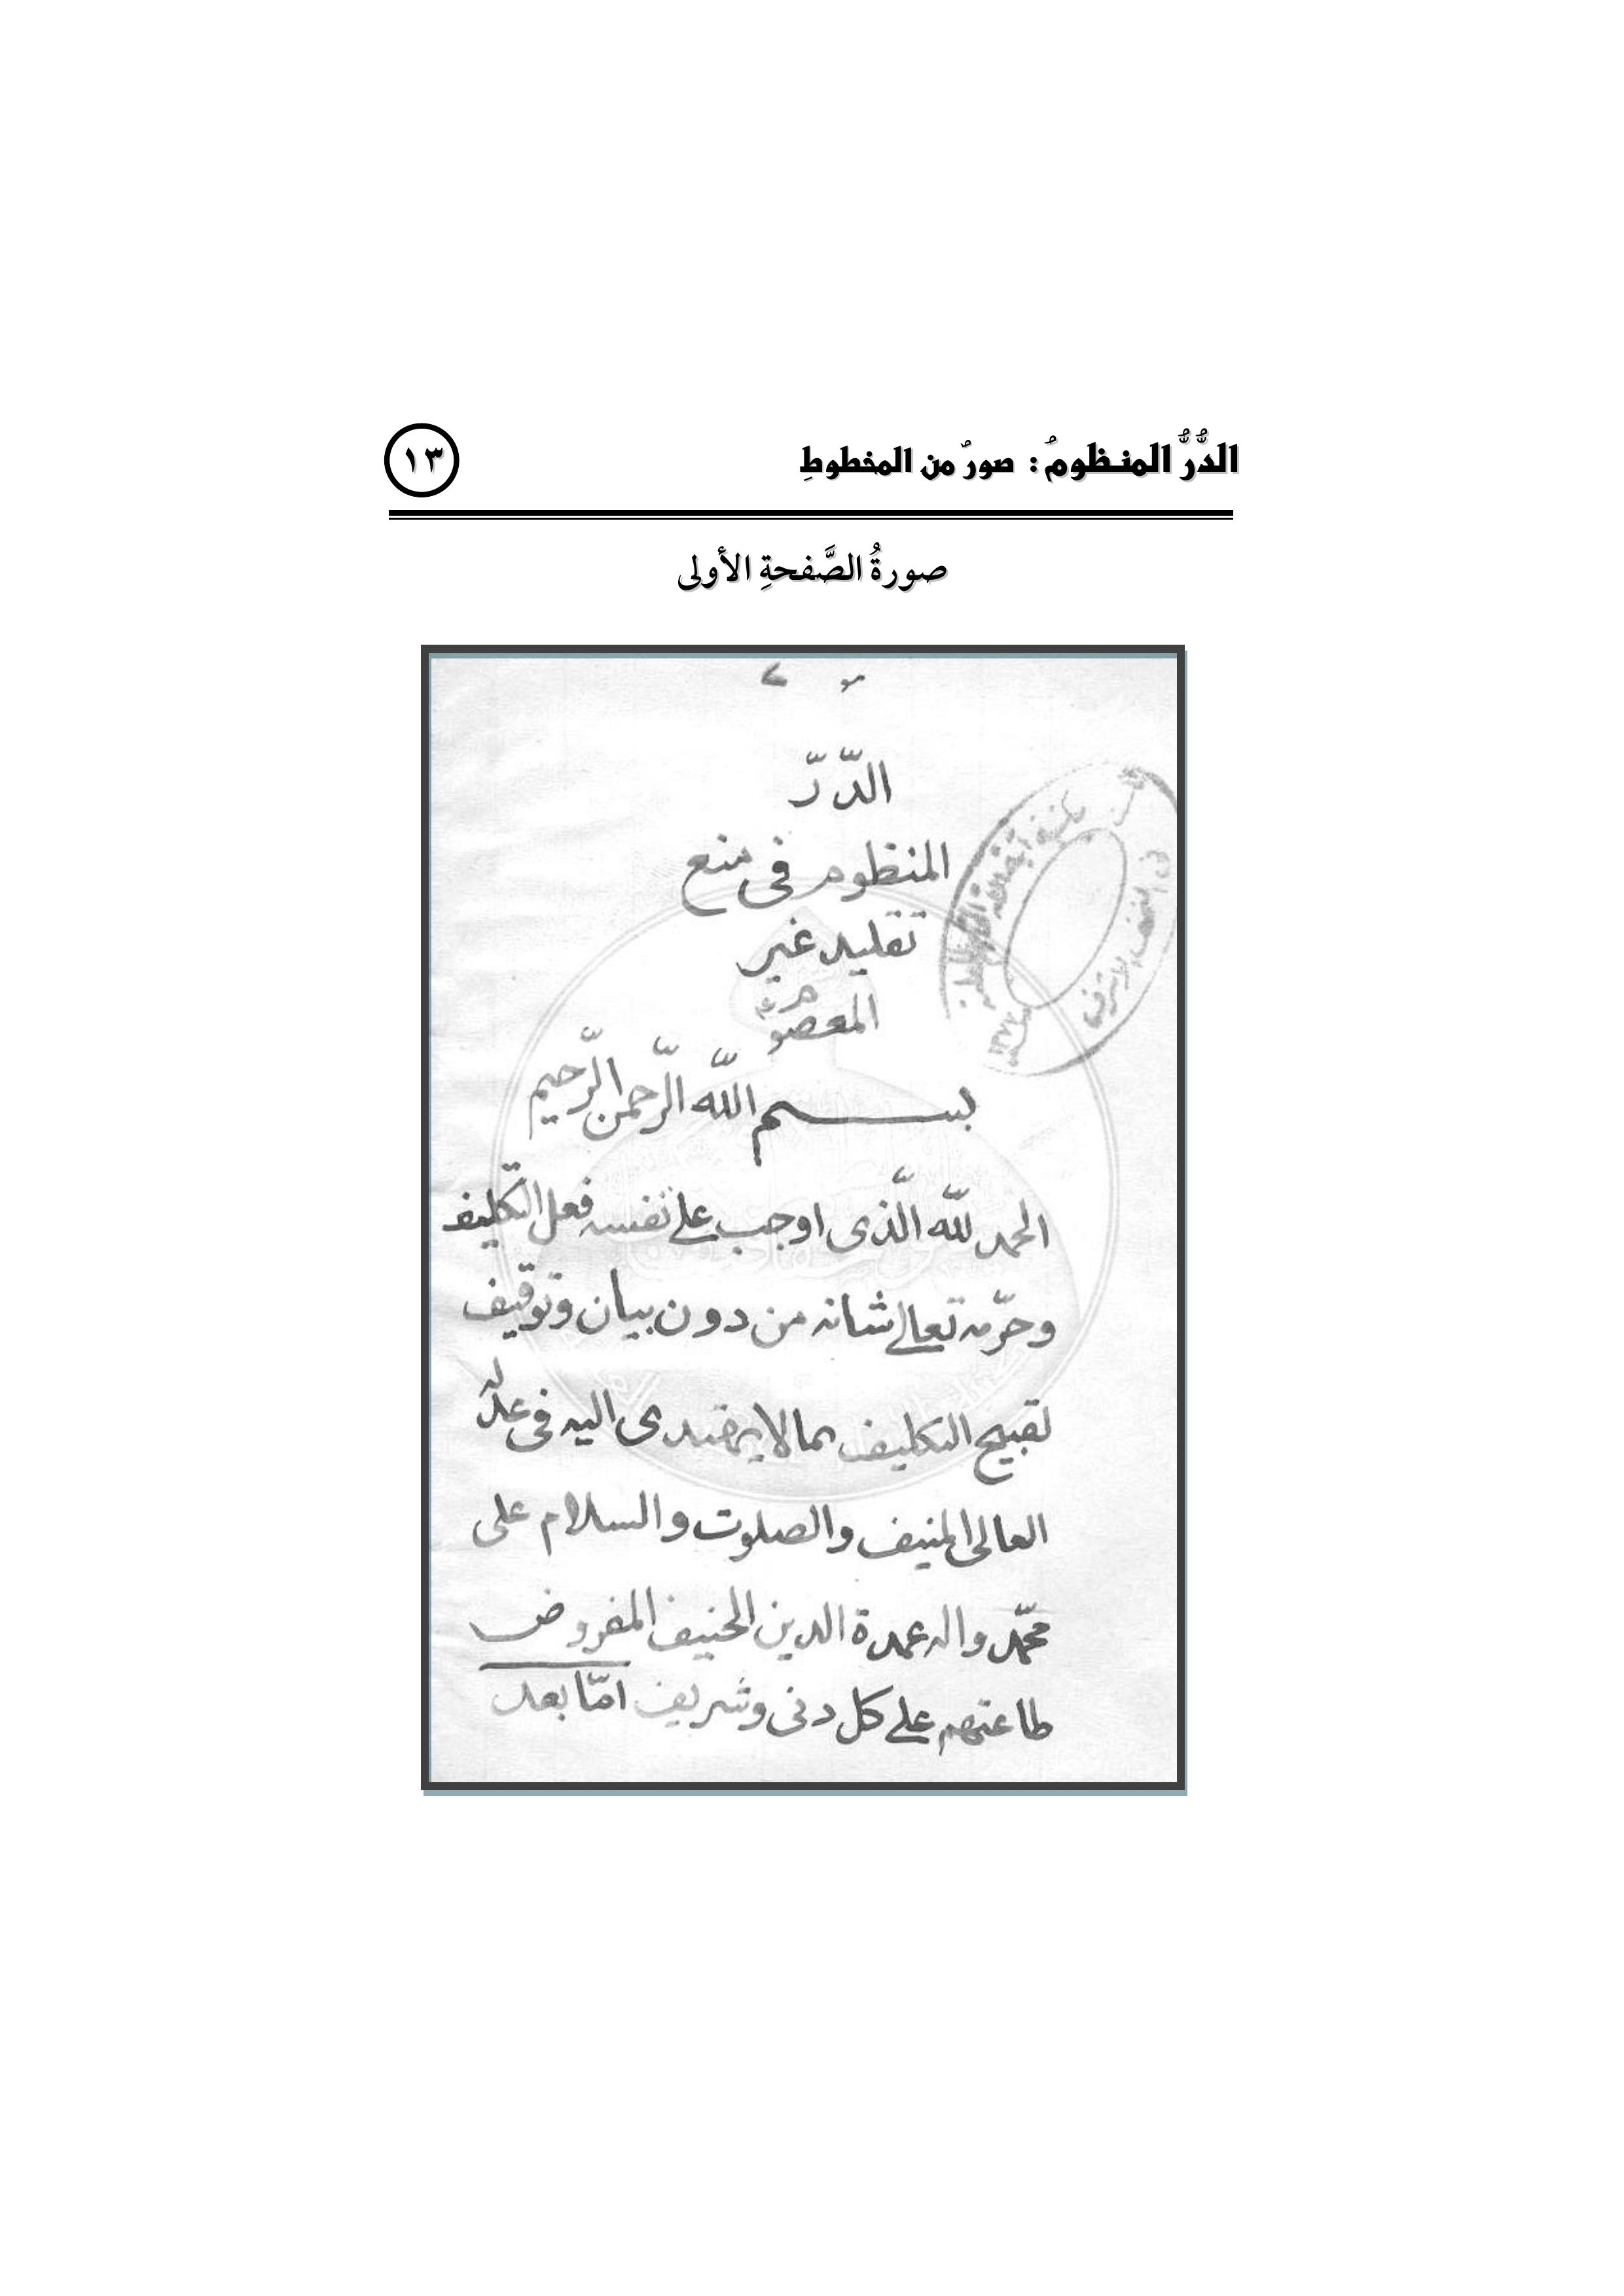 الدُّرُّ المنظومُ : صورٌ من المخطوطِ
١٣
صورةُ الصَّفحةِ الأولى
الدّرّ
المنظوم فى منع
تقليد غير
المعصوم
بسم اللّه الرّحمن الرّحيم
الحمد للّه الّذى اوجب على نفسه فعل التّكليف
وحرّمه تعالى شانه من دون بيان وتوقيف
لقبح التكليف بما لا يهتدى اليه فى عدله
العالى المنيف والصلوت والسلام على
محمّد واله عمدة الدين الحنيف المفروض
طاعتهم على كل دنى وشريف امّا بعد
النجف الاشرف